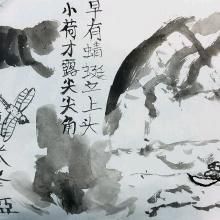 小荷才露尖尖角
早有蜻蜓立上头